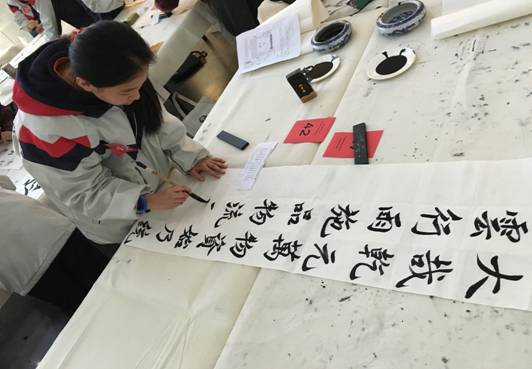 大哉乾元萬物資始乃統
雲行雨施品物流
A2